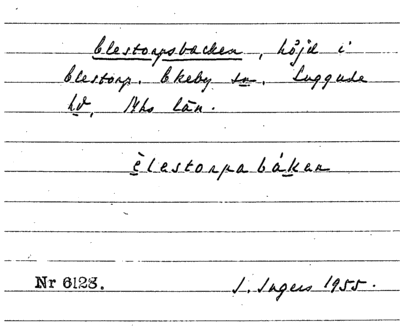 Elestorpsbacken, höjd i
Elestorp, Ekeby sn, Luggude
hd, Mhs län.
èlestorpa bákan
Nr 6128. I. Ingers 1955.